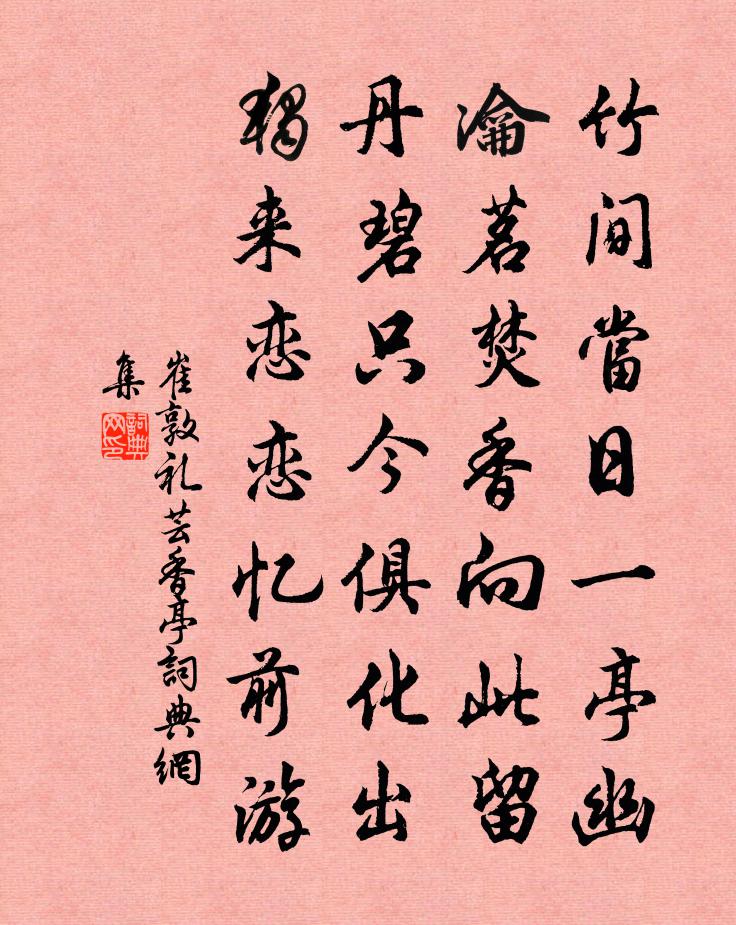 竹间當日一亭幽
瀹茗焚香向此留
丹碧只今俱化出
独来恋恋忆前游
崔敦礼芸香亭詞典網
集
詞典网印